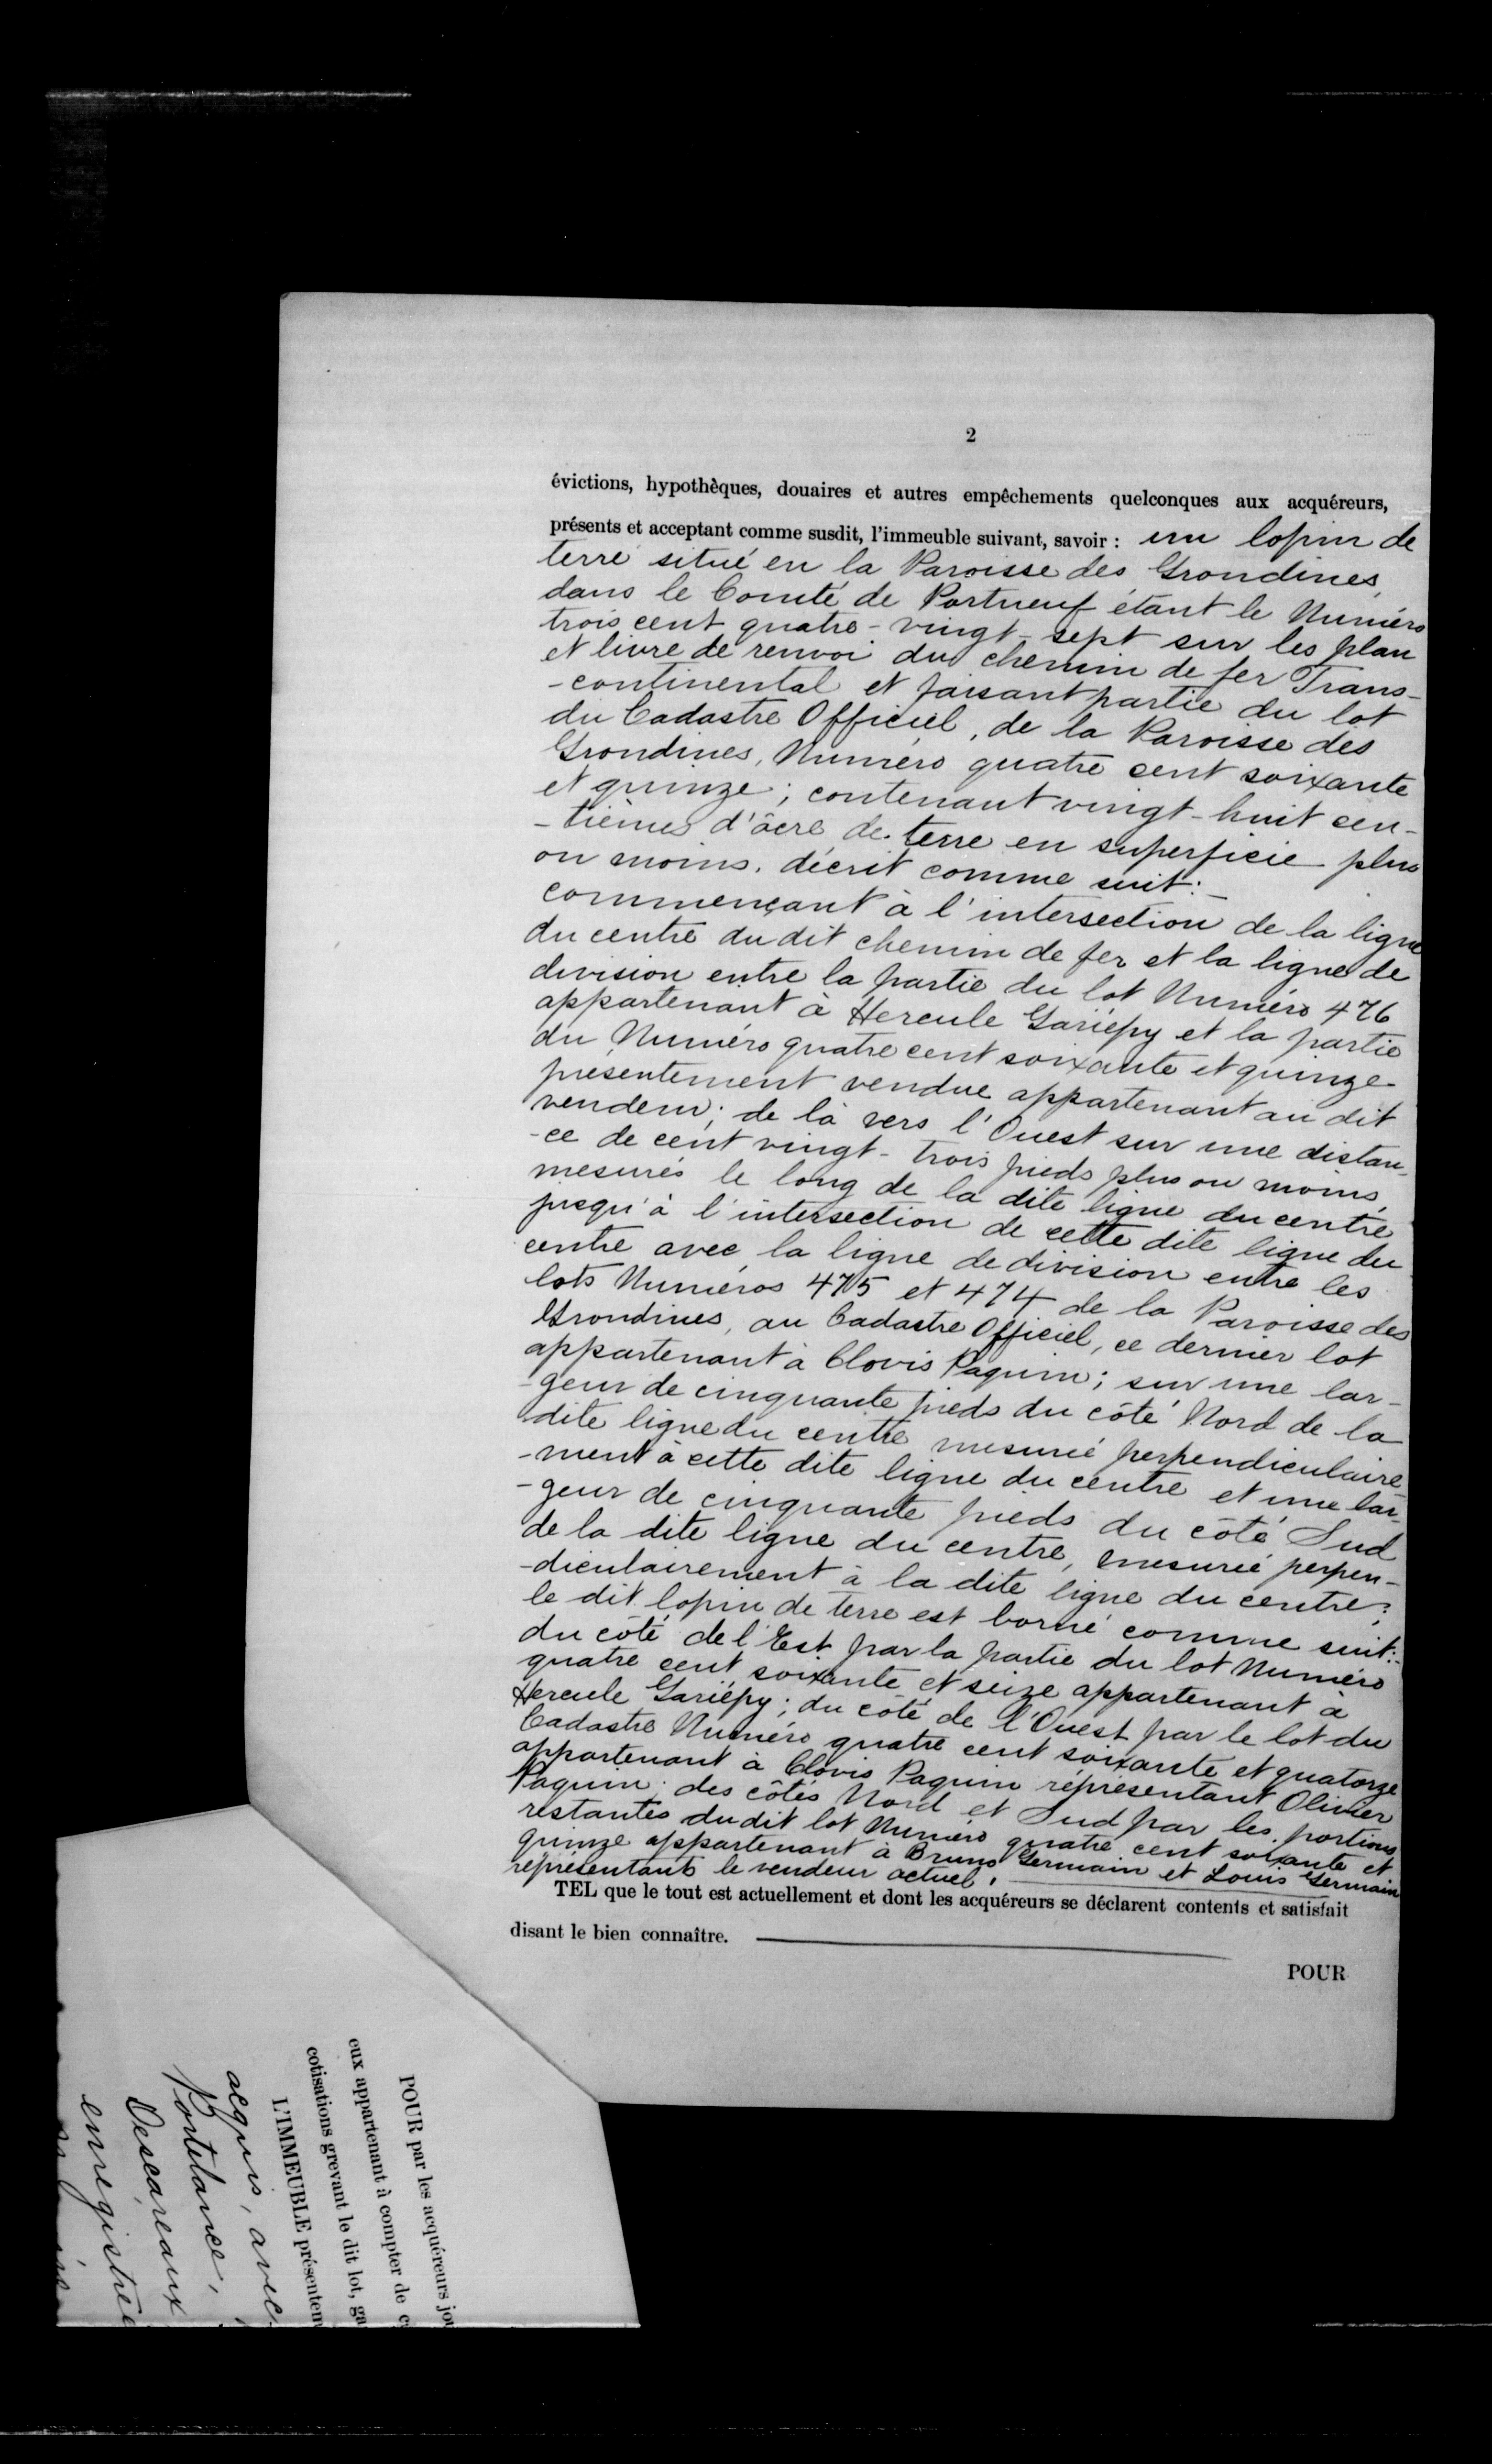 2
évictions, hypothèques, douaires et autres empêchements quelconques aux acquéreurs,
présents et acceptant comme susdit, l'immeuble suivant, savoir : un lopin de
terre situé en la Paroisse des Grondines,
dans le Comté de Portneuf étant le Numéro
trois cent quatre-vingt-sept sur les plan
et livre de renvoi du chemin de fer Trans-
-continental et faisant partie du lot
du Cadastre Officiel, de la Paroisse des
Grondines, Numéro quatre cent soixante
et quinze ; contenant vingt-huit cen-
-tièmes d'âcre de terre en superficie plus
ou moins. décrit comme suit :-
commençant à l'intersection de la ligne
du centre du dit chemin de fer et la ligne de
division entre la partie du lot Numéro 476
appartenant à Hercule Gariépy et la partie
du Numéro quatre cent soixante et quinze
présentement vendue appartenant au dit
vendeur ; de là vers l'Ouest sur une distan-
-ce de cent vingt-trois pieds plus ou moins,
mesurés le long de la dite ligne du centre
jusqu'à l'intersection de cette dite ligne du
centre avec la ligne de division entre les
lots Numéros 475 et 474 de la Paroisse des
Grondines, au Cadastre Officiel, ce dernier lot
appartenant à Clovis Paquin ; sur une lar-
-geur de cinquante pieds du côté Nord de la
dite ligne du centre mesurée perpendiculaire-
-ment à cette dite ligne du centre et une lar-
-geur de cinquante pieds du côté Sud
de la dite ligne du centre, mesurée perpen-
-diculairement à la dite ligne du centre ;
le dit lopin de terre est borné comme suit :-
du côté de l'Est par la partie du lot Numéro
quatre cent soixante et seize appartenant à
Hercule Gariépy ; du côté de l'Ouest par le lot du
Cadastre Numéro quatre cent soixante et quatorze
appartenant à Clovis Paquin représentant Olivier
Paquin ; des côtés Nord et Sud par les portions
restantes du dit lot Numéro quatre cent soixante et
quinze appartenant à Bruno Germain et Louis Germain
représentants le vendeur actuel.
TEL que le tout est actuellement et dont les acquéreurs se déclarent contents et satisfait
disant le bien connaître.
POUR
POUR par les acquéreurs jou
eux appartenant à compter de c
cotisations grevant le dit lot, ga
L'IMMEUBLE présentem
acquis, avec
Portelance,
Descareaux
enregistrée